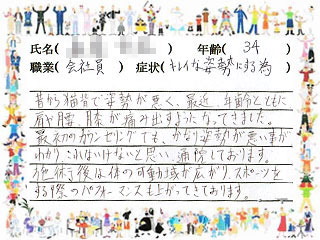 氏名( ) 年齢( 34 )
職業( 会社員 ) 症状( キレイな姿勢にする為 )
昔から猫背で姿勢が悪く、最近、年齢とともに
肩や腰、膝が痛み出すようになってきました。
最初のカウンセリングでも、かなり姿勢が悪い事が
わかり、これはいけないと思い、通院しております。
施術後は体の可動域が広がり、スポーツを
する際のパフォーマンスも上がってきております。